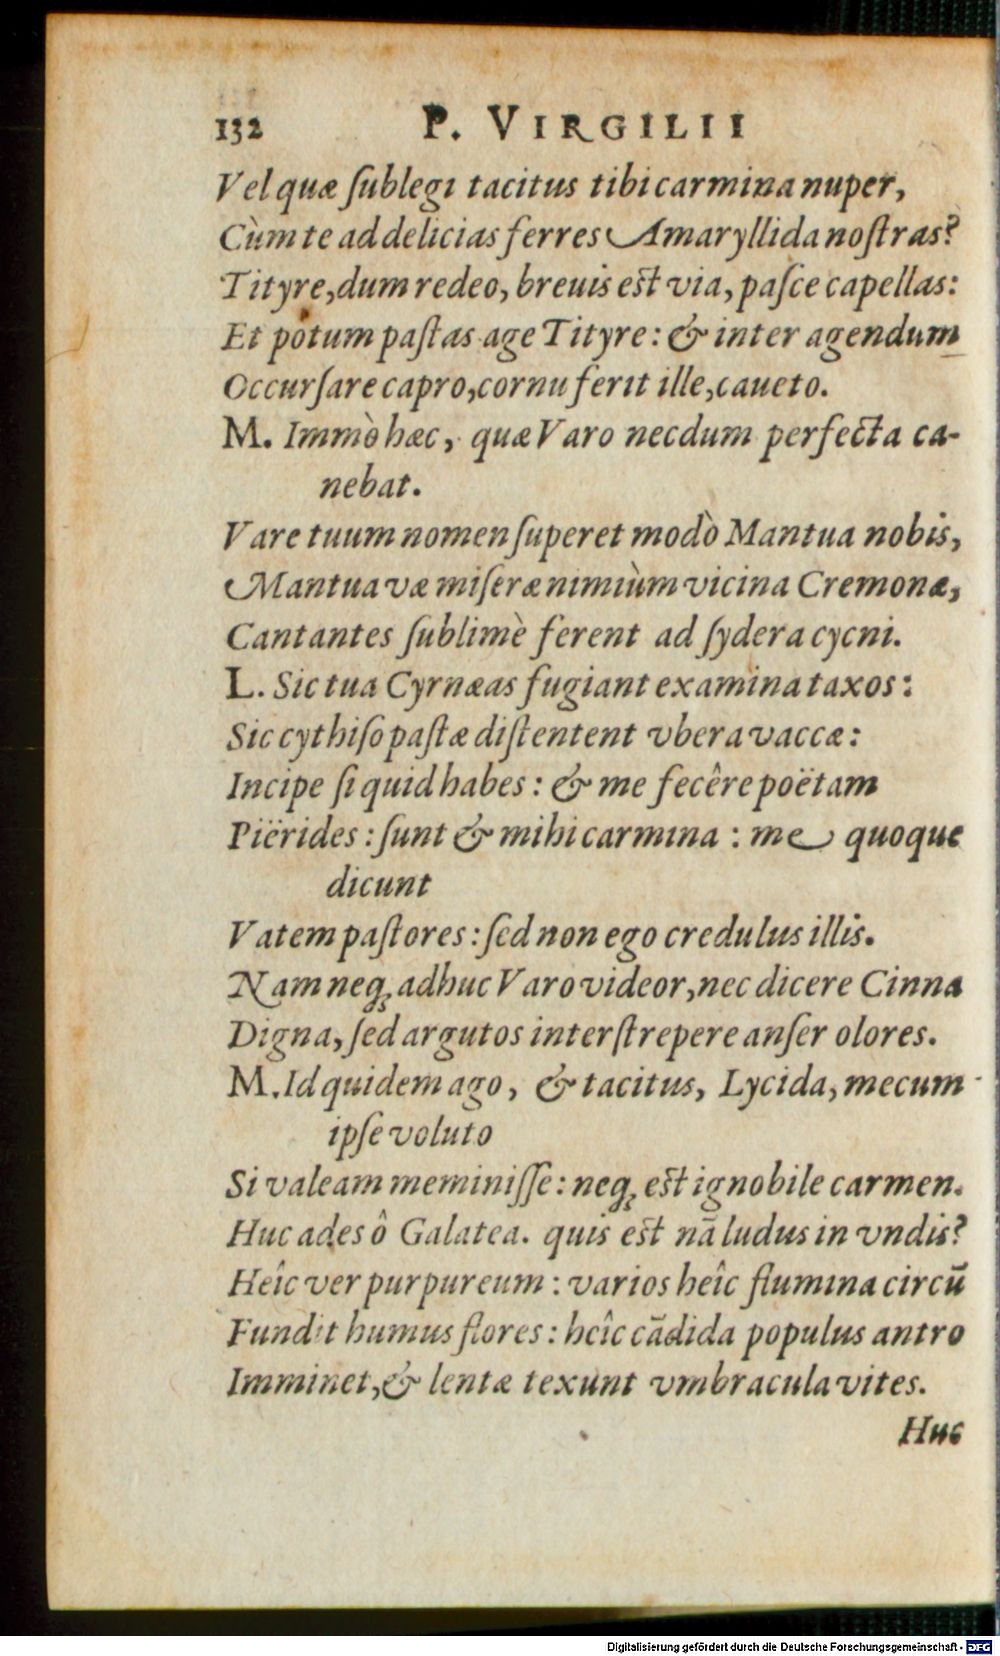 132 P. VIRGILII
Vel quæ ſublegi tacitus tibi carmina nuper,
Cùm te ad delicias ferres Amaryllida noſtras?
Tityre, dum redeo, breuis est via, paſce capellas:
Et potum paſtas age Tityre: & inter agendum
Occurſare capro, cornu ferit ille, caueto.
M. Immò hæc, quæ Varo necdum perfecta ca-
nebat.
Vare tuum nomen ſuperet modò Mantua nobis,
Mantua væ miſeræ nimiùm vicina Cremonæ,
Cantantes ſublimè ferent ad ſydera cycni.
L. Sic tua Cyrnæas fugiant examina taxos:
Sic cythiſo paſtæ diſtentent vbera vaccæ:
Incipe ſi quid habes: & me fecêre poëtam
Piërides: ſunt & mihi carmina: me quoque
dicunt
Vatem paſtores: ſed non ego credulus illis.
Nam neq; adhuc Varo videor, nec dicere Cinna
Digna, ſed argutos interſtrepere anſer olores.
M. Id quidem ago, & tacitus, Lycida, mecum
ipſe voluto
Si valeam meminiſſe: neq; est ignobile carmen.
Huc ades ô Galatea. quis est nā ludus in vndis?
Heîc ver purpureum: varios heîc flumina circū
Fundit humus flores: heîc cādida populus antro
Imminet, & lentæ texunt vmbracula vites.
Huc
Digitalisierung gefördert durch die Deutsche Forschungsgemeinschaft - DFG